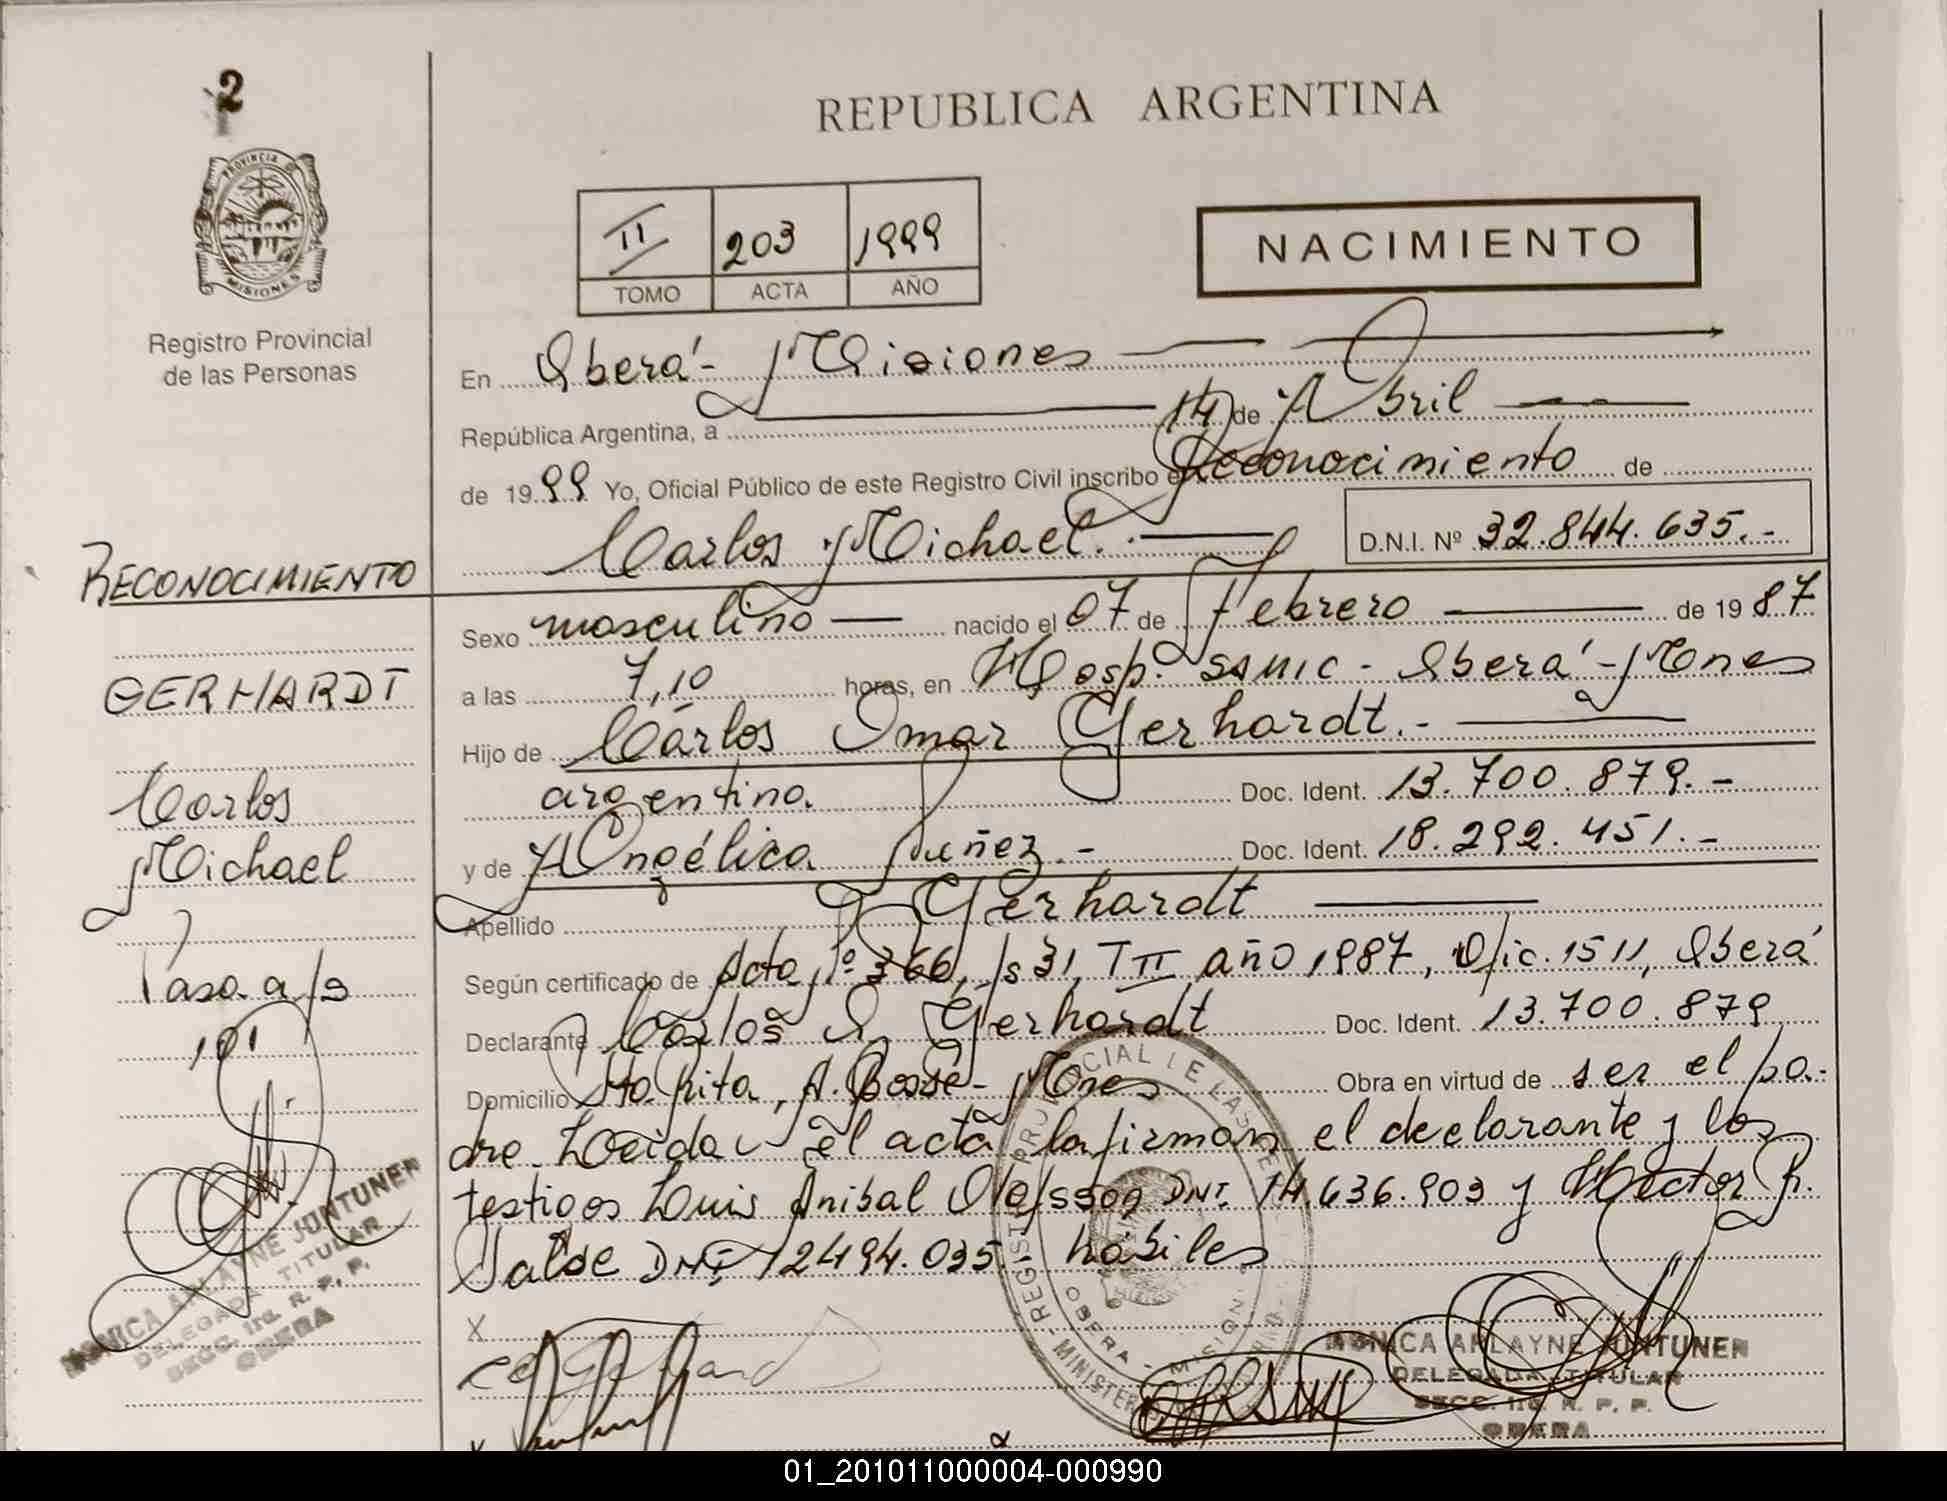 2
PROVINCIA DE
MISIONES
Registro Provincial
de las Personas
REPUBLICA ARGENTINA
II 203 1999
TOMO ACTA AÑO
NACIMIENTO
En Oberá - Misiones
República Argentina, a 14 de Abril
de 1999 Yo, Oficial Público de este Registro Civil inscribo el Reconocimiento de
Carlos Michael. D.N.I. Nº 32.844.635.-
Sexo masculino nacido el 07 de Febrero de 1987
a las 7,10 horas, en Hosp. SAMIC - Oberá - Mnes
Hijo de Carlos Omar Gerhardt.-
argentino. Doc. Ident. 13.700.879.-
y de Angélica Nuñez.- Doc. Ident. 18.292.451.-
Apellido Gerhardt
Según certificado de Acta Nº 366, fs 31, T II año 1987, Ofic. 1511, Oberá
Declarante Carlos O. Gerhardt Doc. Ident. 13.700.879
Domicilio Sta Rita, A. Mnes Obra en virtud de ser el pa-
dre. Leida el acta la firman el declarante y los
testigos Luis Anibal DNI. 14.636.903 y Hector R.
DNI 12494.035.- hábiles
X
RECONOCIMIENTO
GERHARDT
Carlos
Michael
Pasa a fs
101
MONICA ARLAYNE JUNTUNEN
DELEGADA TITULAR
SECC. 1ra. R. P. P.
OBERA
MONICA ARLAYNE JUNTUNEN
DELEGADA TITULAR
SECC. 1ra. R. P. P.
OBERA
01_201011000004-000990